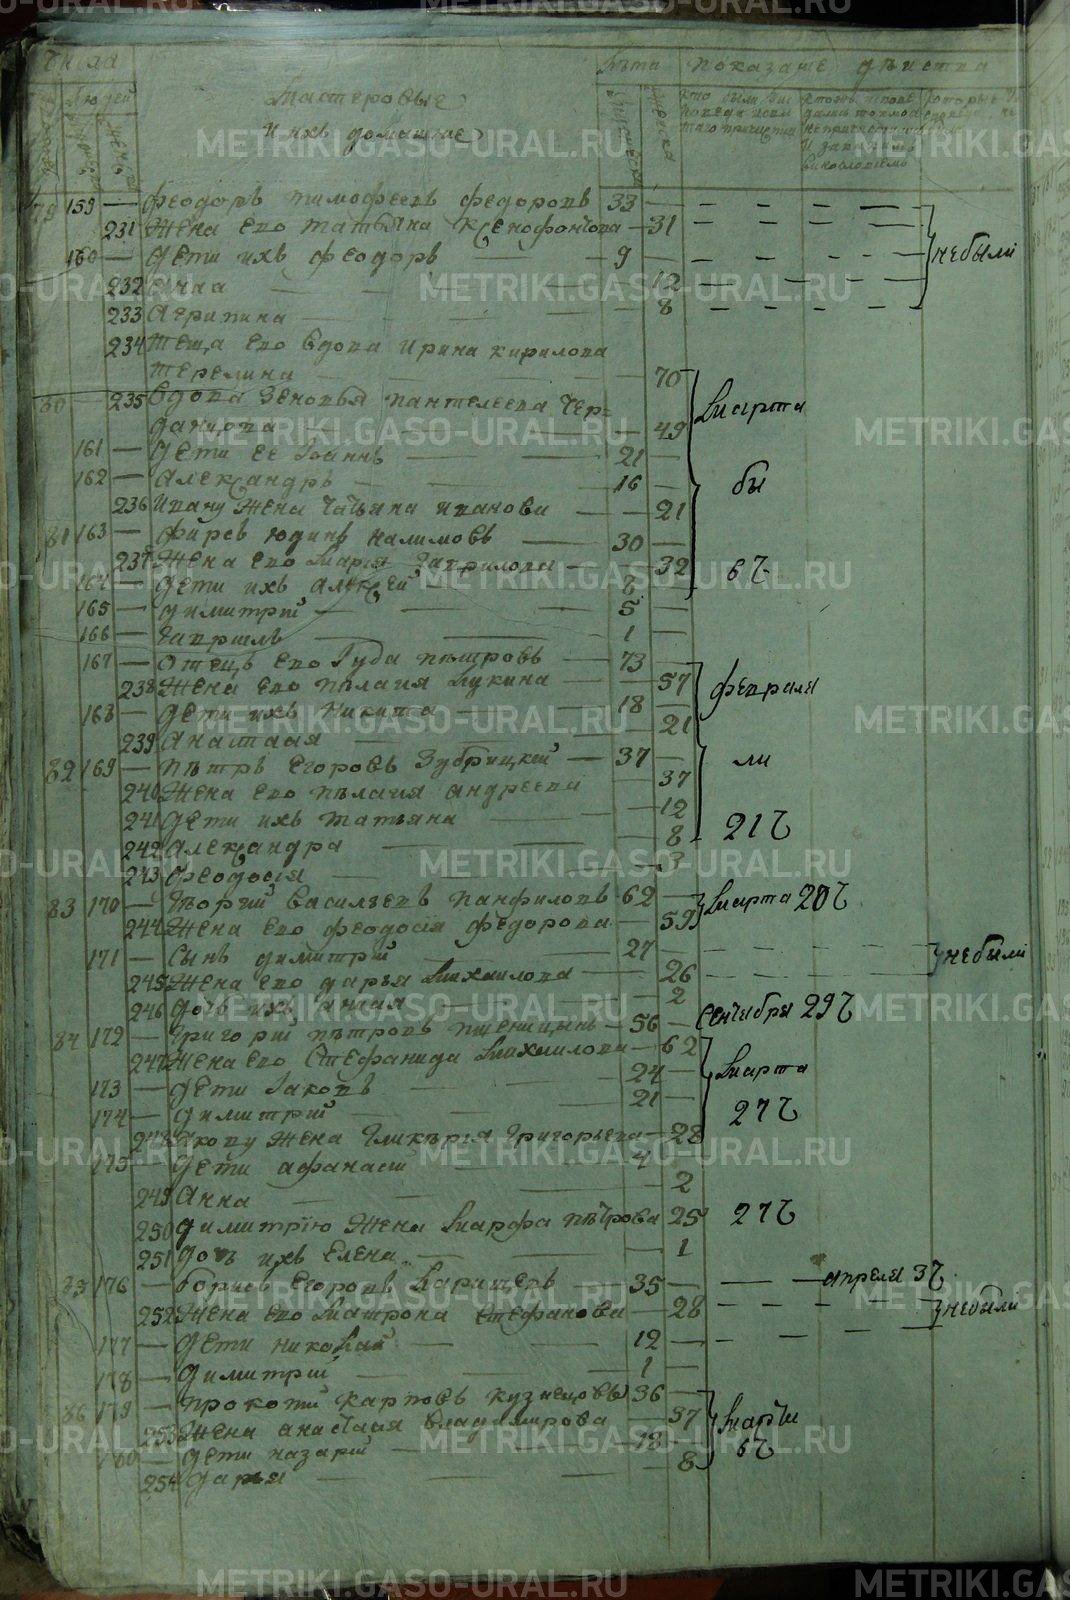 Числа
Людей
Лѣта
показание действа
Мастеровые
и ихъ домашние
79 159 — Феодоръ тимофеевъ федоровъ 33 —
231 Жена его татьяна Ксенофонтова — 31
160 — дети ихъ феодоръ — 9
небыли
232 Анна — 12
233 Агрипина — 8
234 теща его вдова ирина кирилова
терелина — 70
80 — 235 вдова Зеновья пантелеева Чер=
данцова — 49
Марта
161 — дети ее Iоаннъ — 21 —
162 — Александръ — 16 —
бы
236 ивану жена татьяна иванова — 21
81 163 — фирсъ юдинъ налимовъ — 30 —
237 Жена его Марья Гаврилова — 32
6 Ч
164 — дети ихъ Алексей — 7
165 — димитрий — 5 —
166 — Гавриилъ — 1 —
167 — отецъ его Iуда пѣтровъ — 73 —
238 Жена его пѣлагия Лукина — 57
февраля
168 — дети ихъ Никита — 18 —
239 Анастасия — 21
82 169 — пѣтръ егоровъ Зубрицкий — 37 —
ли
240 Жена его пѣлагия андреева — 37
241 дети ихъ татьяна — 12
242 Александра — 8
21 Ч
243 феодосия — 3
83 170 — Георгий Васильевъ панфиловъ 62 —
Марта 20 Ч
244 Жена его феодосия федорова — 59
171 — Сынъ димитрий — 27 —
небыли
245 Жена его дарья Михаилова — 26
246 дочь ихъ — 2
84 172 — Григорий пѣтровъ пшеницынъ — 56 — сентября 29 Ч
247 Жена его Стефанида Михаилова — 62
Марта
173 — дети Iаковъ — 24 —
174 — димитрий — 21 —
27 Ч
248 Якову жена Гликѣрия Григорьева — 28
175 — дети афанасий — 4
249 Анна — 2
250 димитрию жена Марфа пѣтрова 25
27 Ч
251 дочь ихъ Елена — 1
85 176 — Борисъ Егоровъ — 35 — апреля 3 Ч
252 Жена его Матрона Стефанова — 28
небыли
177 — дети николай — 12 —
178 — димитрий — 1 —
86 179 — прокопий Карповъ кузнецовъ 36 —
253 Жена анастасия владимирова — 37
Марта
6 Ч
180 — дети назарий — 13 —
254 дарья — 8